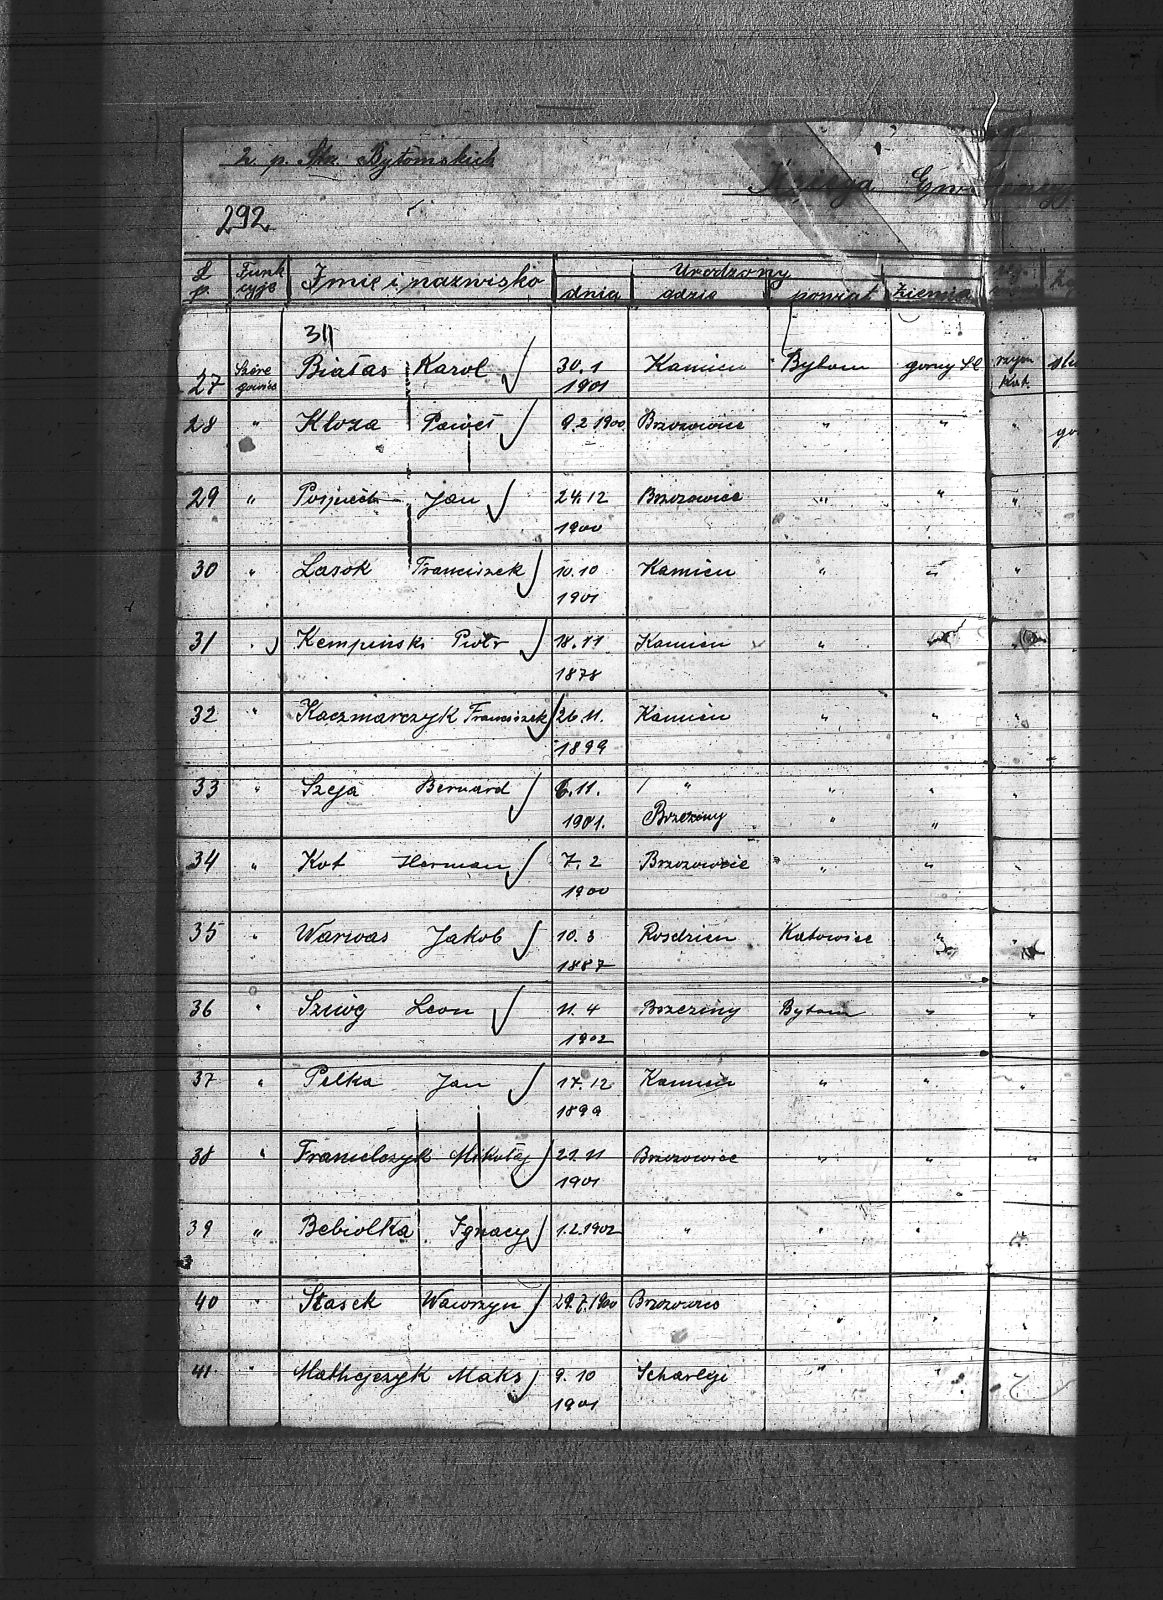 2 p. Strz. Bytomskich
Księga Ewidencyj
292
L. p. Funk cyje Imię i nazwisko Urodzony
dnia gdzie powiat ziemia
311
27 Szere gowiec Białas Karol 30.1 1901 Kamień Bytom gorny Sl rzym Kat.
28 " Kłoza Paweł 9.2 1900 Brzozowice " " "
29 " Jan 24.12 1900 Brzozowice " " "
30 " Lasok Franciszek 10.10 1901 Kamien " " "
31 " Kempiński Piotr 18.11 1878 Kamien " "
32 " Kaczmarczyk Franciszek 26.11. 1899 Kamien " " "
33 " Szeja Bernard 6.11. 1901. " Brzeziny " " "
34 " Kot Herman 7.2 1900 Brzozowice " "
35 " Warwas Jakob 10.3 1887 Rosdzien Katowice " "
36 " Szwög Leon 11.4 1902 Brzeziny Bytom " "
37 " Pelka Jan 17.12 1899 Kamien " " "
38 " Franielczyk Mikołaj 21.11 1901 Brzozowice " " "
39 " Bebiolka Ignacy 1.2.1902 " " " "
40 " Stasek Wawrzyn 29.7.1900 Brzozowice " "
41 " Mathejczyk Maks 9.10 1901 Scharlej " "